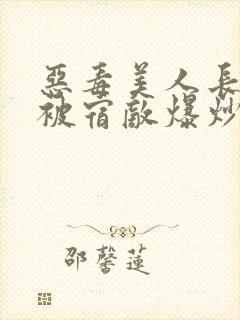 惡毒美人長
被宿敵爆炒
邵馨蓮